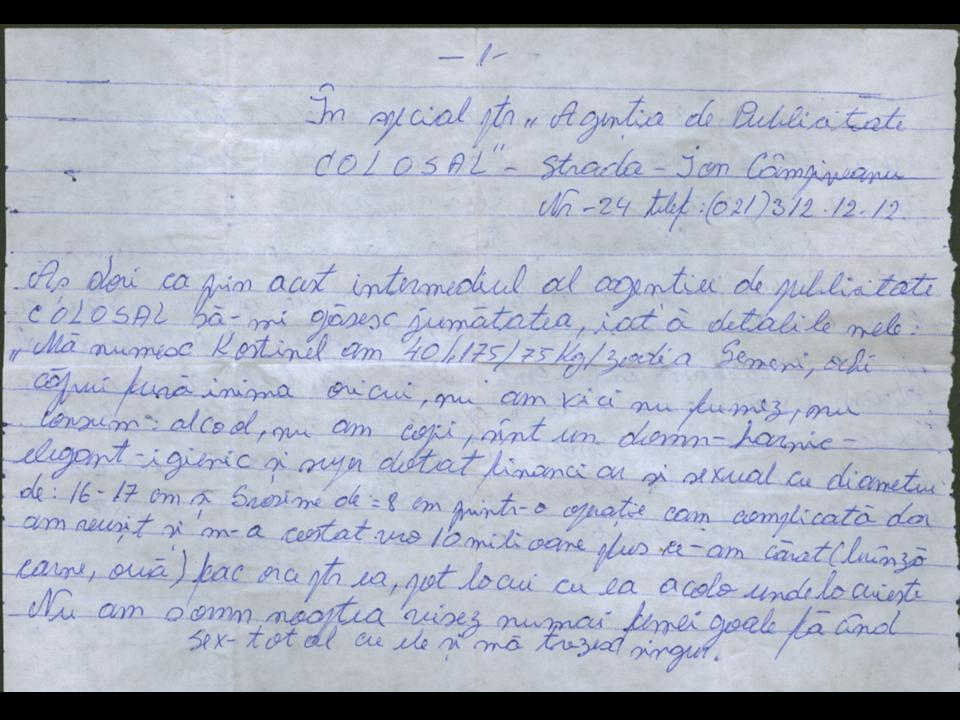 - 1 -
În special ptr „Agenția de Publicitate
COLOSAL" - Strada - Ion Câmpineanu
Nr - 24 telef: (021) 312.12.12.
Aș dori ca prin acest intermediul al agenției de publicitate
COLOSAL să-mi găsesc jumătatea, iată detalile mele:
„Mă numesc Kostinel am 40/1,175/75Kg/zodia Gemeni, ochi
căprui fură inima oricui, nu am vici nu fumez, nu
consum: alcool, nu am copi, sînt un domn-harnic-
elegant-igienic și super dotat financiar și sexual cu diametrui
de: 16-17 cm și Grosime de = 8 cm printr-o operație cam complicată dar
am reușit și m-a costat vro 10 milioane plus ce-am cărat (brînză
carne, ouă) fac orice ptr ea, pot locui cu ea acolo unde locuiește
Nu am somn noaptea visez numai femei goale făcînd
sex-total cu ele și mă trezesc singur.